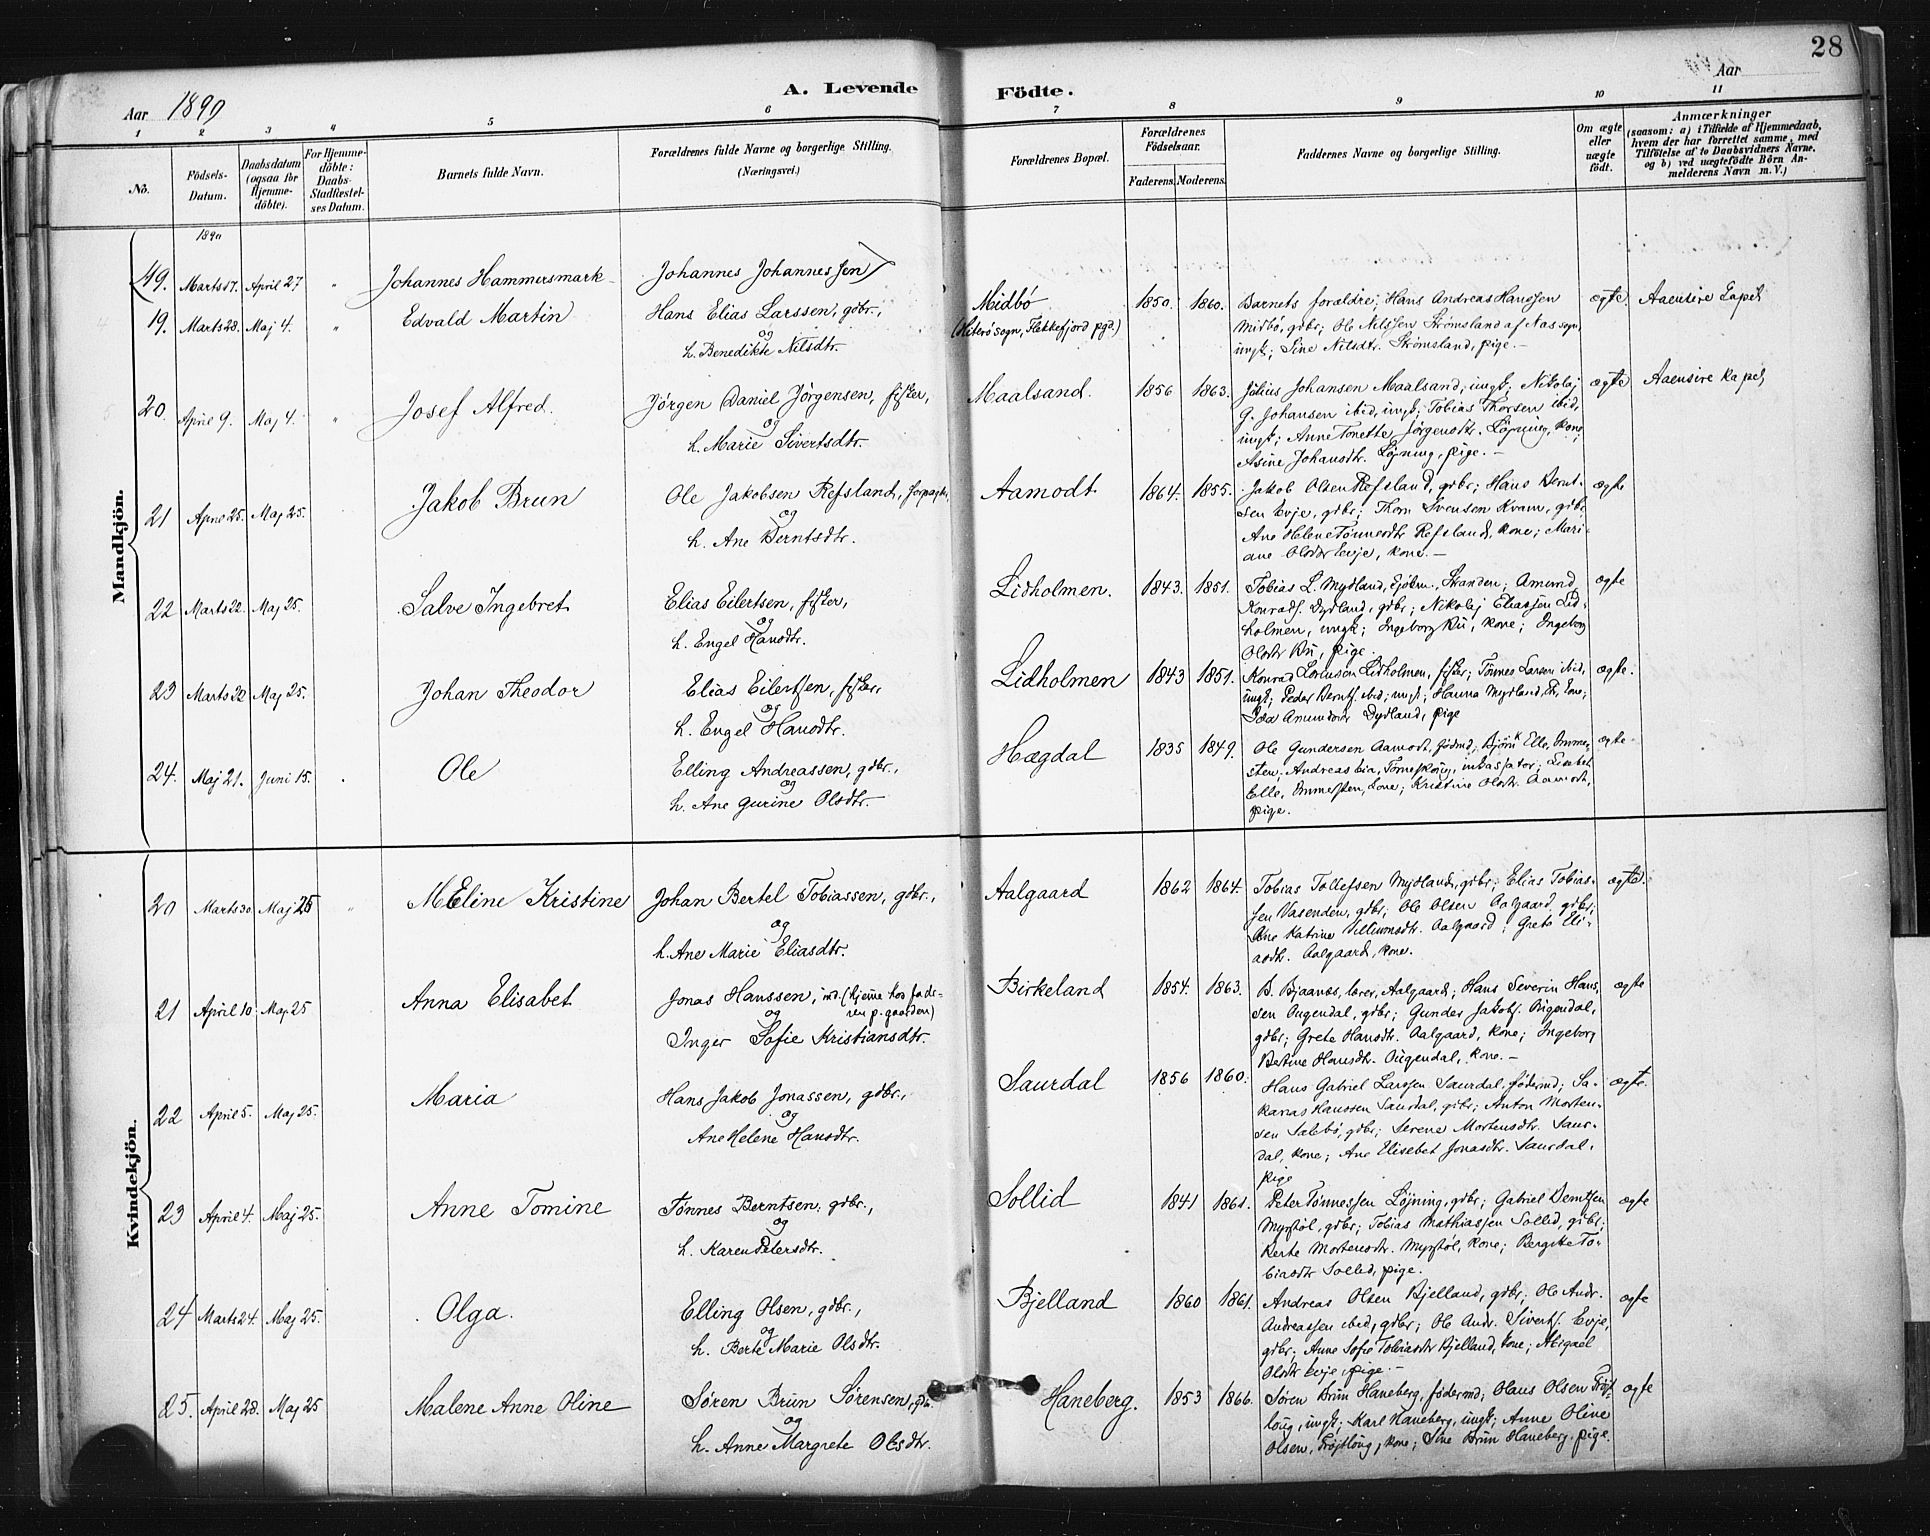 28
A. Levende Födte.
Aar 1890
Aar
1 2 3 4 5 6 7 8 9 10 11
No.
Födsels-Datum.
Daabsdatum (ogsaa for Hjemmedöbte).
For Hjemmedöbte: Daabs-Stadfæstelses Datum.
Barnets fulde Navn.
Forældrenes fulde Navne og borgerlige Stilling.
(Næringsvei.)
Forældrenes Bopæl.
Forældrenes Födselsaar.
Faderens. Moderens.
Faddernes Navne og borgerlige Stilling.
Om ægte eller uægte födt.
Anmærkninger
(saasom: a) i Tilfælde af Hjemmedaab, hvem der har forrettet samme, med Tilföielse af to Daabsvidners Navne, og b) ved uægtefödte Börn Anmelderens Navn m. V.)
Mandkjön.
1890
(19. Marts 17. April 27 " Johannes Hammersmark Johannes Johannessen)
19. Marts 28. Maj 4. " Edvald Martin Hans Elias Larssen, gdbr., Midbö 1850. 1860. Barnets forældre; Hans Andreas Hanssen ægte Aaensire Kapel
og (Hiterö sogn, Flekkefjord pgd.) Midbö, gdbr; Ole Nilssen Strömsland af Nas sogn,
h. Benedikte Nilsdtr. ungk; Sine Nilsdtr. Strömsland, pige. —
20. April 9. Maj 4. " Josef Alfred. Jörgen Daniel Jörgensen, fisker, Maalsand. 1856 1863. Julius Johansen Maalsand, ungk; Nikolaj ægte Aaensire Kapel
og G. Johansen ibid, ungk; Tobias Thorsen ibid,
h. Marie Sivertsdtr. ungk; Anne Tonette Jörgensdtr. Löjning, kone;
Asine Johansdtr. Löjning, pige. —
21 April 25. Maj 25. Jakob Brun Ole Jakobsen Refsland, forpagter, Aamodt 1864. 1855. Jakob Olsen Refsland, gdbr; Hans Bernt- ægte
og sen Evje, gdbr; Thom Svensen Kvam, gdbr;
h. Ane Berntsdtr. Ane Helene Tönnesdtr Refsland, kone; Mari-
ane Olsdtr Evje, kone. —
22 Marts 22. Maj 25. Salve Ingebret Elias Eilertsen, fisker, Lidholmen. 1843. 1851. Tobias L. Mydland, Stranden; Amund ægte
og Konrads. Dydland, gdbr; Nikolaj Eliassen Lid-
h. Engel Hansdtr. holmen, ungk; Ingeborg Bu, kone; Ingeborg
Olsdtr Bu, pige.
23 Marts 22 Maj 25. Johan Theodor Elias Eilertsen, fisker, Lidholmen 1843 1851. Konrad Lidholmen, fisker; Tönnes Larsen ibid, ægte.
og ungk; Peder Bernts. ibid; ungk; Hanna Mydland, kone;
h. Engel Hansdtr. Amundsdtr Dydland, pige
24. Maj 21. Juni 15. Ole Elling Andreassen, gdbr., Hægdal 1835 1849. Ole Gundersen Aamodt, Elle, ægte
og Andreas
h. Ane Gurine Olsdtr. — Elle, kone; Kristine Olsdtr. Aamodt,
pige.
Kvindekjön.
20 Marts 30. Maj 25 " Meline Kristine Johan Bertel Tobiassen, gdbr., Aalgaard 1862 1864. Tobias Tollefsen Mydland, gdbr; Elias Tobias- ægte
og sen Vasenden, gdbr; Ole Olsen Aalgaard, gdbr;
h. Ane Marie Eliasdtr. Ane Katrine Villumsdtr. Aalgaard; Grete Eli-
asdtr. Aalgaard, kone.
21 April 10. Maj 25 Anna Elisabet Jonas Hanssen, ind. (hjemme hos fade- Birkeland 1854. 1863. B. Bjaanæs, lærer, Aalgaard; Hans Severin Hans- ægte
og ren p. gaarden) sen Ougendal, gdbr; Gunder Jakobs. Ougendal,
Inger Sofie Kristiansdtr. gdbr; Grete Hansdtr. Aalgaard, kone; Ingeborg
Bertine Hansdtr. Ougendal, kone. —
22 April 5. Maj 25. Maria Hans Jakob Jonassen, gdbr., Saurdal 1856 1860. Hans Gabriel Larssen Saurdal, födermd; Sa- ægte.
og karias Hanssen Saurdal, gdbr; Anton Morten-
Ane Helene Hansdtr. sen Salebö, gdbr; Serene Mortensdtr. Saur-
dal, kone; Ane Elisebet Jonasdtr. Saurdal,
pige
23 April 4. Maj 25. Anne Tomine Tönnes Berntsen, gdbr., Sollid 1841 1861. Peter Tönnessen Löjning, gdbr; Gabriel Berntsen ægte
og Myrstöl, gdbr; Tobias Mathiassen Sollid, gdbr;
h. Karen Petersdtr. Berte Mortensdtr. Myrstöl, kone; Bergitte To-
biasdtr Sollid, pige.
24 Marts 24. Maj 25. Olga. Elling Olsen, gdbr., Bjelland 1860 1861. Andreas Olsen Bjelland, gdbr; Ole Andr. ægte
og Andreassen ibid, gdbr; Ole Andr. Siverts. Evje,
h. Berte Marie Olsdtr. gdbr; Anne Sofie Tobiasdtr Bjelland, kone; Abigael
Olsdtr Evje, pige. —
25. April 28. Maj 25 Malene Anne Oline Sören Brun Sörensen, gdb. Haneberg. 1853 1866. Sören Brun Haneberg, födermd; Olaus Olsen Fröjt- ægte
og loug, ungk; Karl Haneberg, ungk; Anne Oline
h. Anne Margrete Olsdtr. Olsen, Fröjtloug, kone; Sine Brun Haneberg, pige.